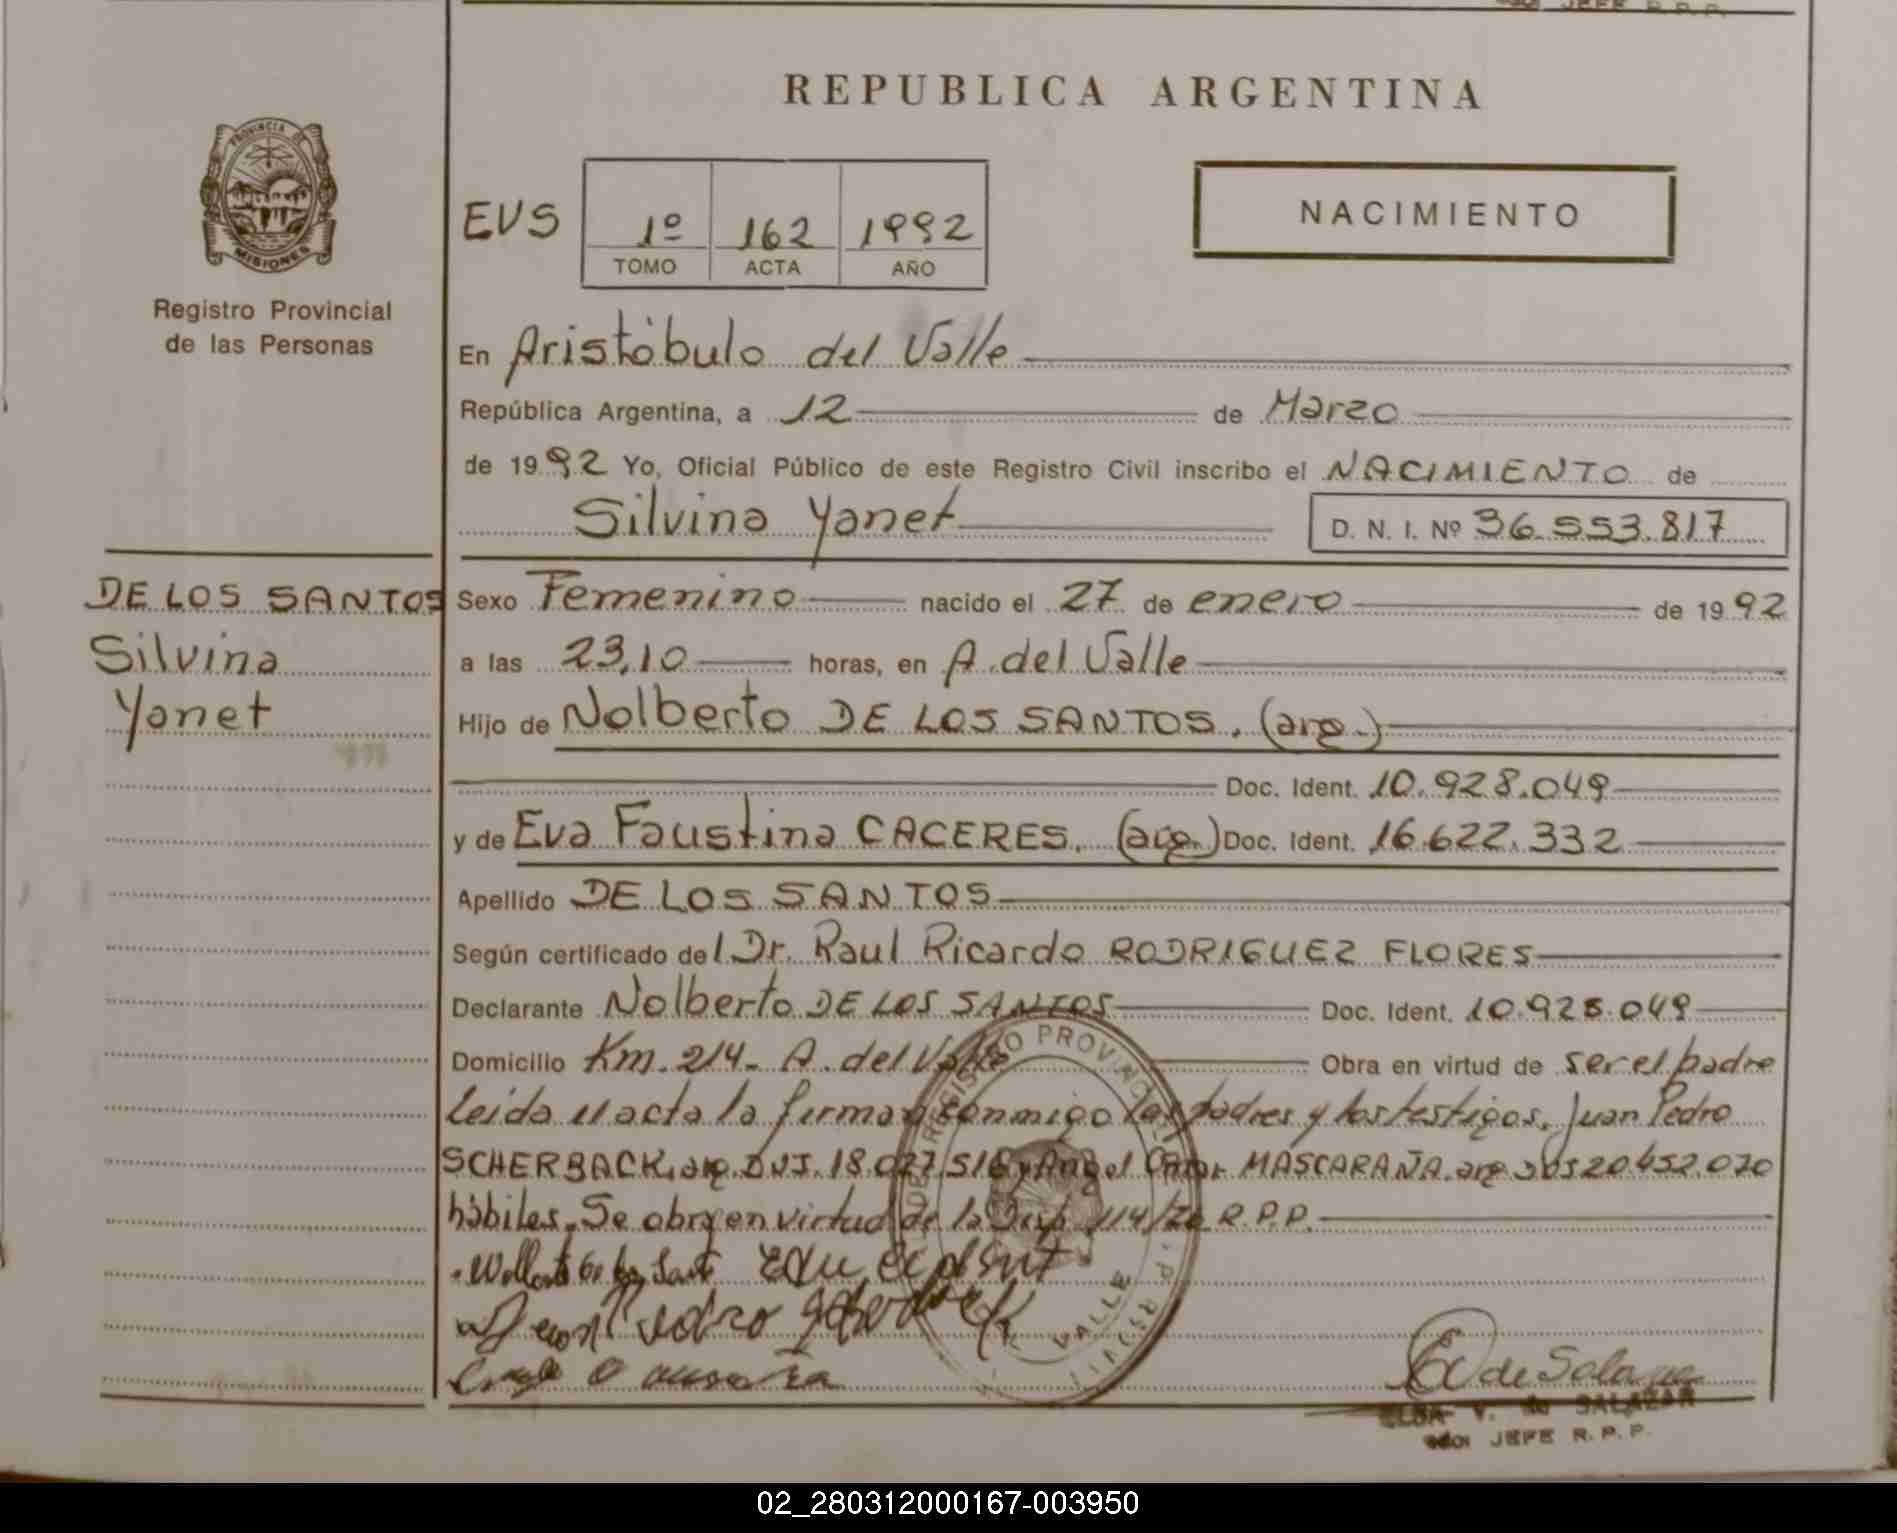 JEFE R.P.P.
REPUBLICA ARGENTINA
PROVINCIA DE
MISIONES
Registro Provincial
de las Personas
EVS 1º 162 1992
TOMO ACTA AÑO
NACIMIENTO
En Aristóbulo del Valle
República Argentina, a 12 de Marzo
de 1992 Yo, Oficial Público de este Registro Civil inscribo el NACIMIENTO de
Silvina Yanet D. N. I. Nº 36.553.817
DE LOS SANTOS
Silvina
Yanet
Sexo Femenino nacido el 27 de enero de 1992
a las 23,10 horas, en A. del Valle
Hijo de Nolberto DE LOS SANTOS. (arg.)
Doc. Ident. 10.928.049
y de Eva Faustina CACERES. (arg.) Doc. Ident. 16.622.332
Apellido DE LOS SANTOS
Según certificado del Dr. Raul Ricardo RODRIGUEZ FLORES
Declarante Nolberto DE LOS SANTOS Doc. Ident. 10.928.049
Domicilio Km. 214- A. del Valle Obra en virtud de ser el padre
Leida el acta la firman conmigo los padres y los testigos. Juan Pedro
SCHERBACK, arg. DNI. 18.027.516 y Angel MASCARAÑA. arg. 20.452.070
hábiles. Se obra en virtud de la Disp. 114/ R.P.P.
REGISTRO PROVINCIAL
VALLE
de Salazar
ELSA V. de SALAZAR
JEFE R.P.P.
02_280312000167-003950